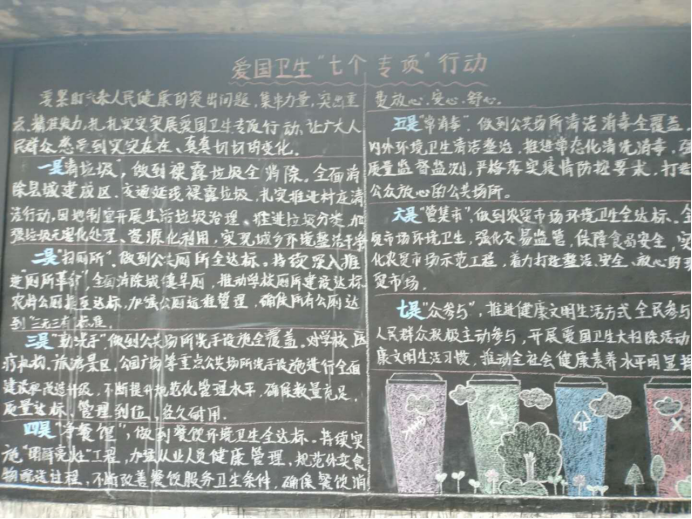 爱国卫生“七个专项”行动
要紧盯关系人民健康的突出问题,集中力量,突出重
点,精准发力,扎扎实实开展爱国卫生专项行动,让广大人
民群众感受到实实在在、真真切切的变化。
一是“清垃圾”,做到裸露垃圾全消除。全面清
除县城建成区、交通延线裸露垃圾,扎实推进村庄清
洁行动,因地制宜开展生活垃圾治理,推进垃圾分类,加
强垃圾无害化处理、资源化利用,实现城乡环境整洁干净
二是“扫厕所”,做到公共厕所全达标。持续深入推
进“厕所革命”,全面消除城镇旱厕,推动学校厕所建设达标
农村公厕提质达标,加强公厕运维管理,确保所有公厕达
到“三无三有”标准。
三是“勤洗手”做到公共场所洗手设施全覆盖。对学校、医
疗机构、旅游景区、公园广场等重点公共场所洗手设施进行全面
建设和改造升级,不断提升规范化管理水平,确保数量充足,
质量达标、管理到位、经久耐用。
四是“净餐馆”,做到餐饮环境卫生全达标。持续实
施“明厨亮灶”工程,加强从业人员健康管理,规范外卖食
物配送过程,不断改善餐饮服务卫生条件,确保餐饮消
费放心、安心、舒心。
五是“常消毒”,做到公共场所清洁消毒全覆盖。
内外环境卫生清洁整治,推进常态化清洗消毒,强
质量监督监测,严格落实疫情防控要求,打造
公众放心的公共场所。
六是“管集市”,做到农贸市场环境卫生全达标、全
贸市场环境卫生,强化交易监管,保障食品安全,实
化农贸市场示范工程,着力打造整洁、安全、放心的农
贸市场。
七是“众参与”,推进健康文明生活方式全民参与
人民群众积极主动参与,开展爱国卫生大扫除活动
康文明生活习惯,推动全社会健康素养水平明显提